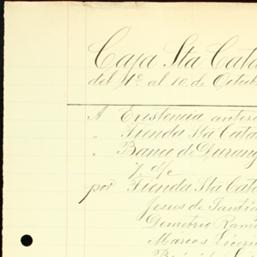 Caja Sta Cata
del 1º al 10 de Octub
A Existencia anteri
" Tienda Sta Cata
" Banco de Durang
por Tienda Sta Cata
Jesus de Santia
Demetrio Rami
Marcos